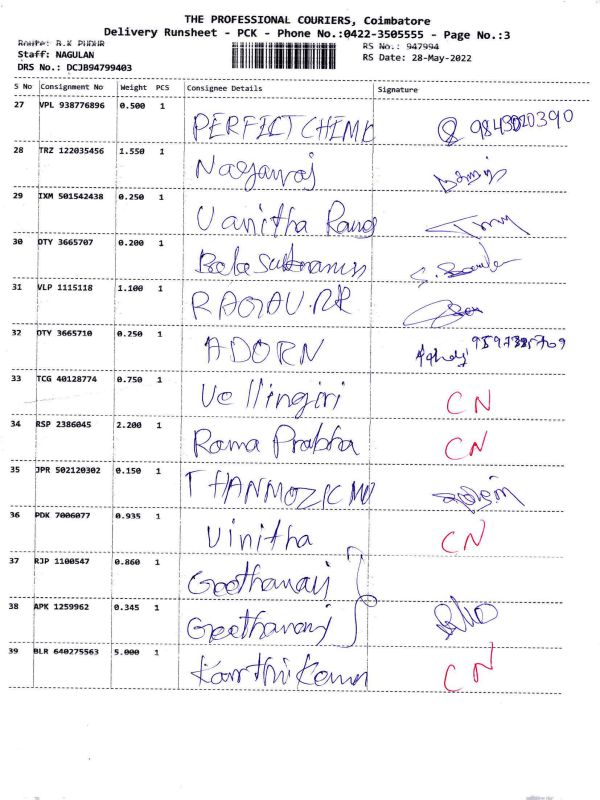 THE PROFESSIONAL COURIERS, Coimbatore
Delivery Runsheet - PCK - Phone No.:0422-3505555 - Page No.:3
Route: B.K PUDUR RS No.: 947994
Staff: NAGULAN RS Date: 28-May-2022
DRS No.: DCJB94799403
S No Consignment No Weight PCS Consignee Details Signature
27 VPL 938776896 0.500 1 PERFICT CHEMI
28 TRZ 122035456 1.550 1 Nagaraj
29 IXM 501542438 0.250 1 Vanitha Rang
30 OTY 3665707 0.200 1
31 VLP 1115118 1.100 1
32 OTY 3665710 0.250 1 ADORN
33 TCG 40128774 0.750 1 Vellingiri CN
34 RSP 2386045 2.200 1 Rama Prabha CN
35 JPR 502120302 0.150 1
36 PDK 7006077 0.935 1 Vinitha CN
37 RJP 1100547 0.860 1 Geethanraj
38 APK 1259962 0.345 1 Geethanraj
39 BLR 640275563 5.000 1 CN